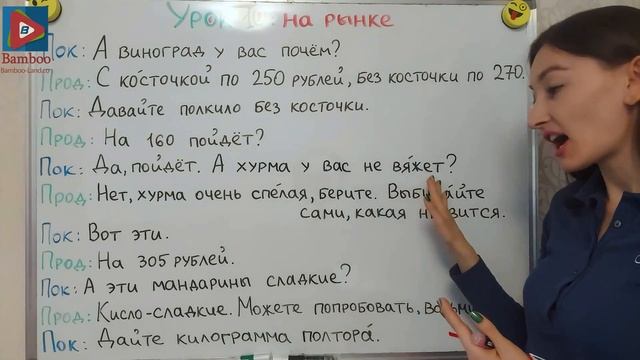 Bamboo
Bamboo-Land.co
Урок на рынке
Пок: А виноград у вас почём?
Прод: С косточкой по 250 рублей, без косточки по 270.
Пок: Давайте полкило без косточки.
Прод: На 160 пойдёт?
Пок: Да, пойдёт. А хурма у вас не вя́жет?
Прод: Нет, хурма очень спе́лая, берите.
сами, какая
Пок: Вот эти.
Прод: На 305 рублей.
Пок: А эти мандарины сладкие?
Прод: Кисло-сладкие. Можете попробовать,
Пок: Дайте килограмма полтора́.